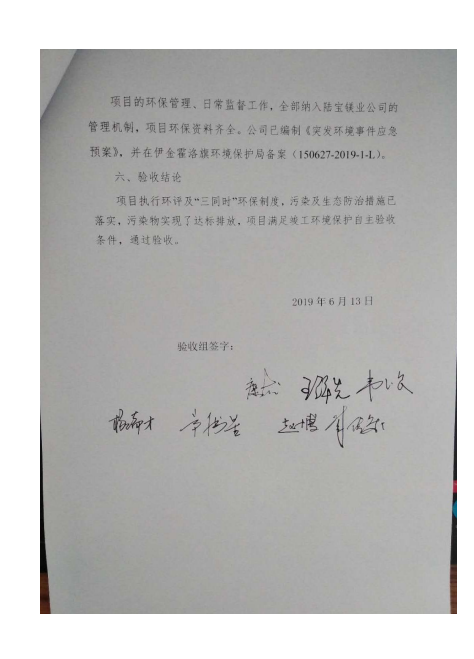 项目的环保管理、日常监督工作，全部纳入陆宝镁业公司的
管理机制，项目环保资料齐全。公司已编制《突发环境事件应急
预案》，并在伊金霍洛旗环境保护局备案（150627-2019-1-L）。
六、验收结论
项目执行环评及“三同时”环保制度，污染及生态防治措施已
落实，污染物实现了达标排放，项目满足竣工环境保护自主验收
条件，通过验收。
2019 年 6 月 13 日
验收组签字：
赵博